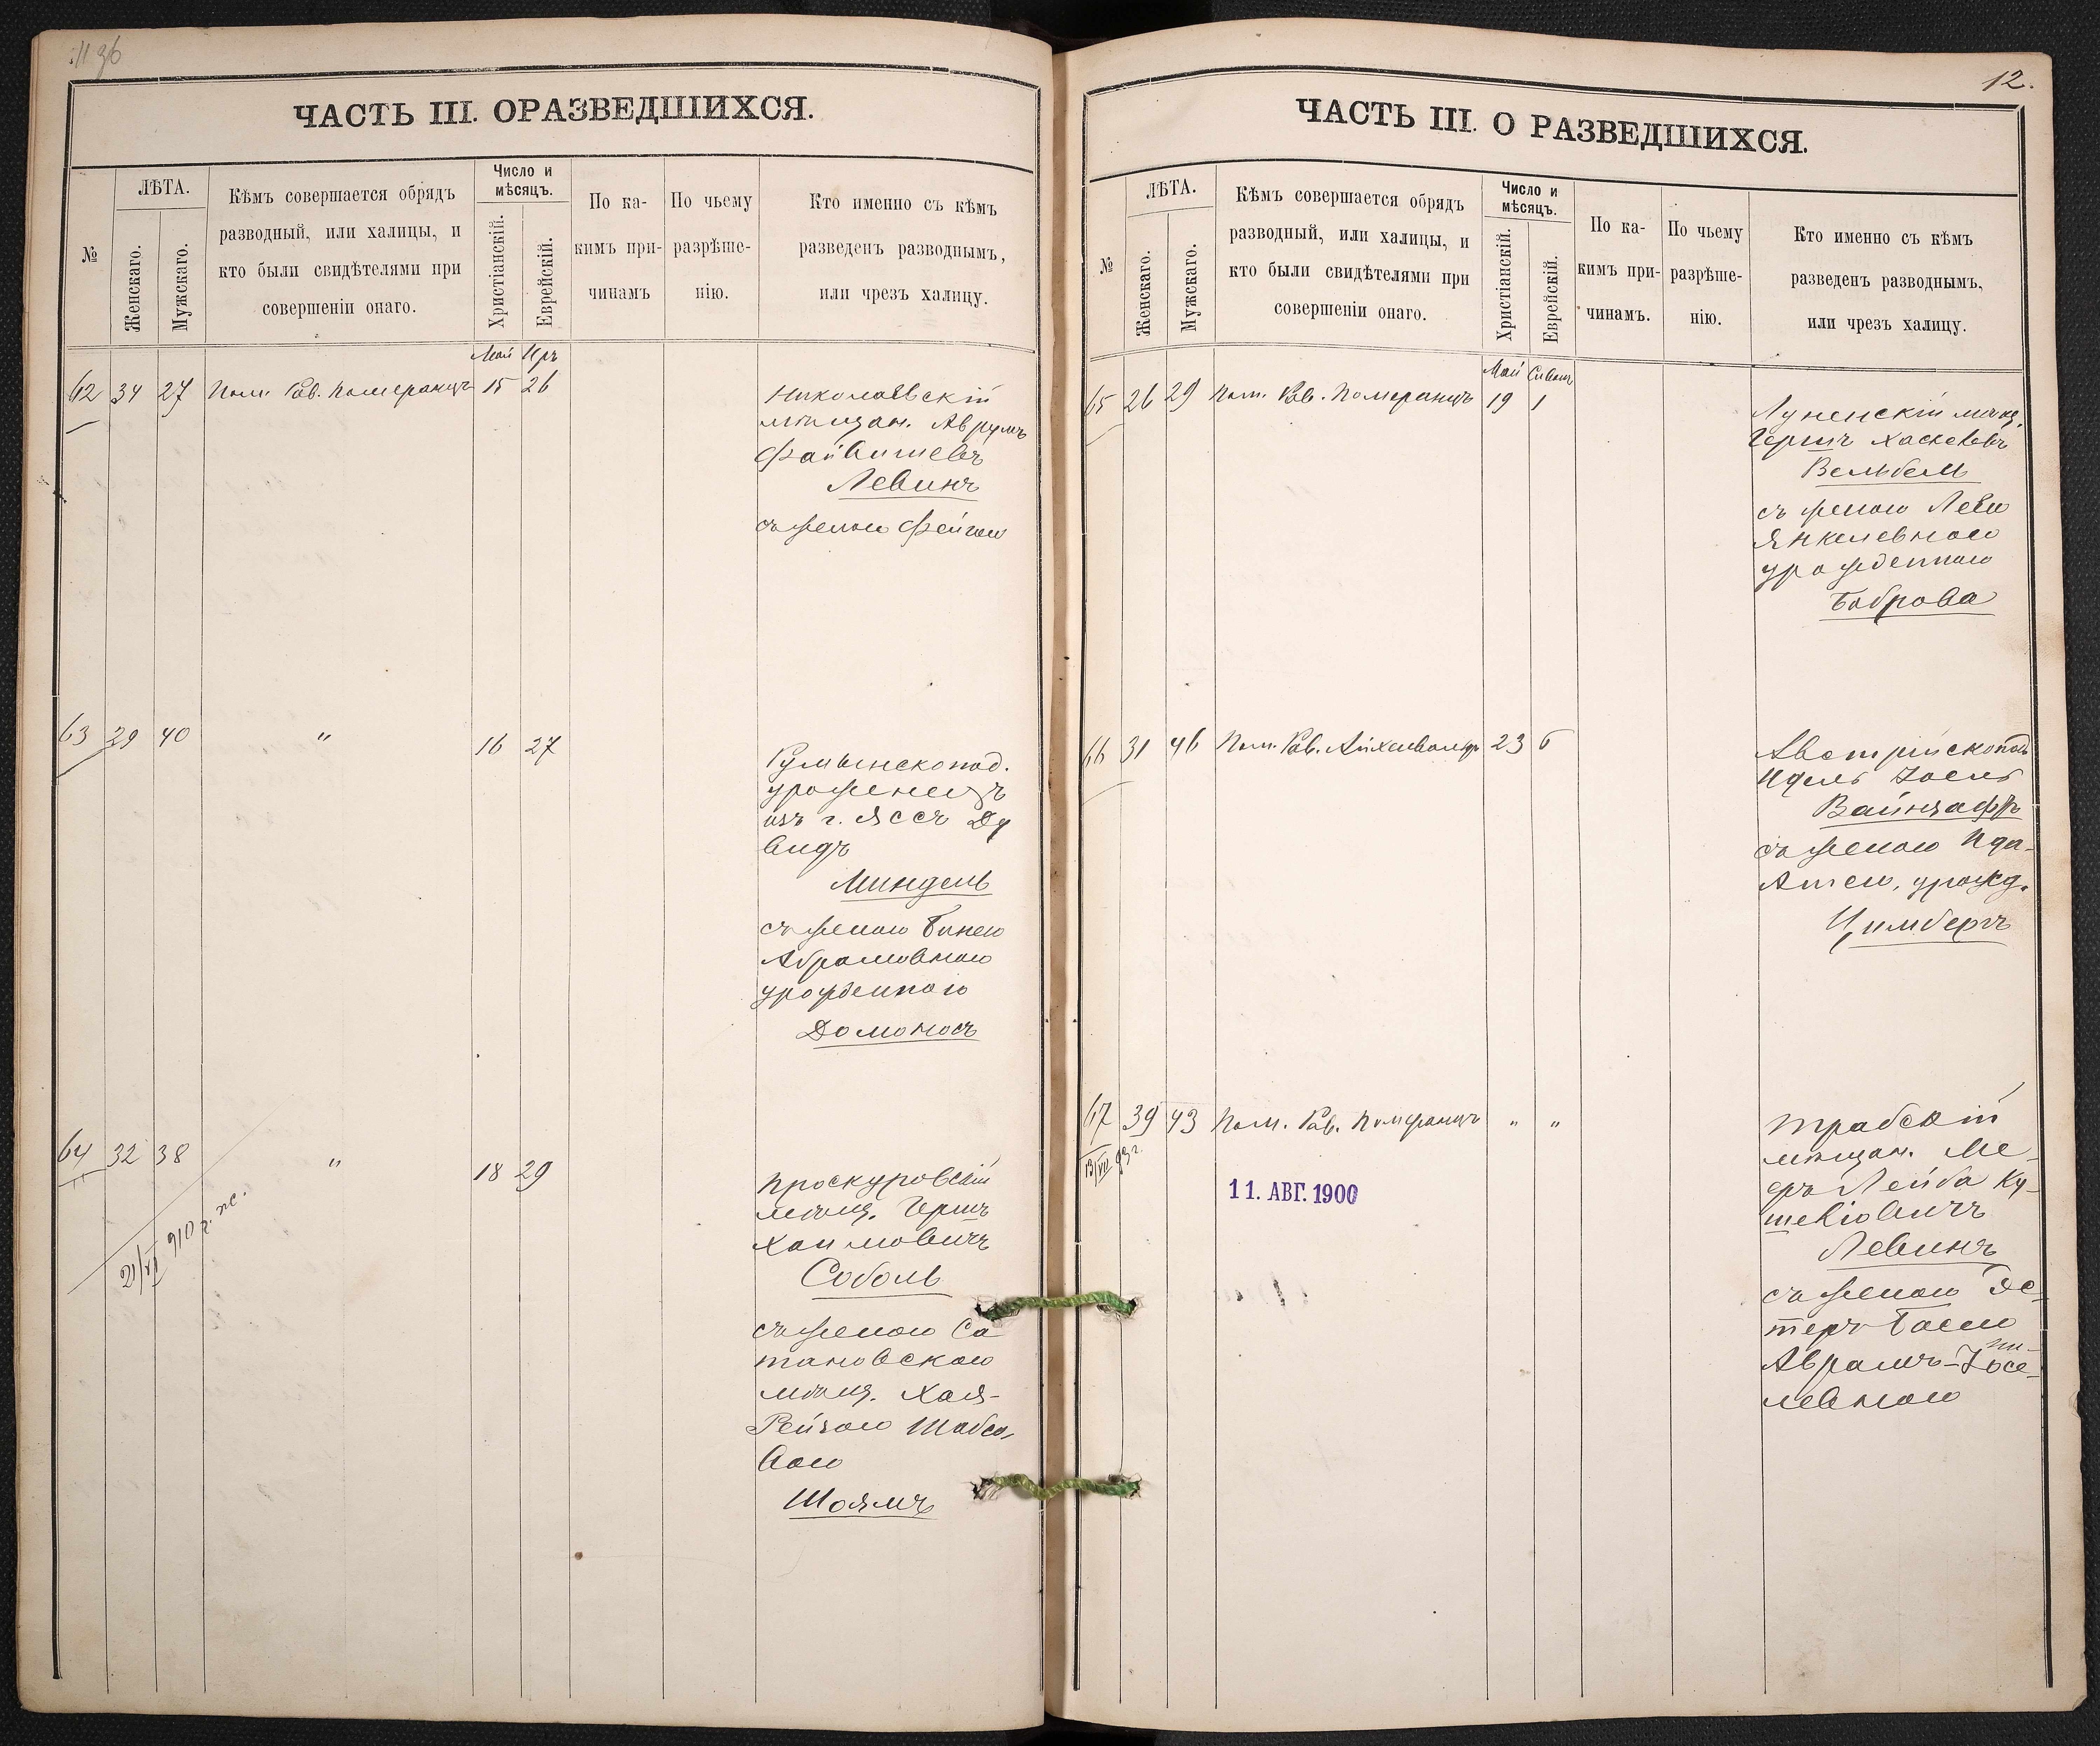 ЧАСТЬ III. О РАЗВЕДШИХСЯ.
№
ЛѢТА.
Женскаго.
Мужскаго.
Кѣмъ совершается обрядъ
разводный, или халицы, и
кто были свидѣтелями при
совершеніи онаго.
Число и
мѣсяцъ.
Христіанскій.
Еврейскій.
По ка-
кимъ при-
чинамъ
По чьему
разрѣше-
нію.
Кто именно съ кѣмъ
разведенъ разводнымъ,
или чрезъ халицу.
Май Иръ
62 34 27 Пом. Рав. Померанцъ 15 26
Николаевскій
мѣщан. Аврумъ
Файвишевъ
Левинъ
съ женою Фейгою
63 29 40 " 16 27
Румынскопод.
уроженецъ
изъ г. Яссъ Да
видъ
Миндель
съ женою Бинею
Абрамовною
урожденною
Домоносъ
64 32 38 " 18 29
21/VI 910 г. ж.
Проскуровскій
мѣщ. Гершъ
Хаимовичъ
Соболь
съ женою Са
тановскою
мѣщ. Хая-
Рейзою Шабса-
вою
Шоямъ
12.
ЧАСТЬ III. О РАЗВЕДШИХСЯ.
№
ЛѢТА.
Женскаго.
Мужскаго.
Кѣмъ совершается обрядъ
разводный, или халицы, и
кто были свидѣтелями при
совершеніи онаго.
Число и
мѣсяцъ.
Христіанскій.
Еврейскій.
По ка-
кимъ при-
чинамъ.
По чьему
разрѣше-
нію.
Кто именно съ кѣмъ
разведенъ разводнымъ,
или чрезъ халицу.
Май Сиванъ
65 26 29 Пом. Рав. Померанцъ 19 1
Луненскій мѣщ.
Гершъ Хаскелевъ
Вельбель
съ женою Леею
Янкелевною
урожденною
Боброва
66 31 46 Пом. Рав. Айхенвальдъ 23 5
Австрійскопод
Идель Іосель
Вайнзафтъ
съ женою Ида-
Атею, урожд.
Цимбергъ
67 39 43 Пом. Рав. Померанцъ " "
13/VII 93 г.
11. АВГ. 1900
Трабскій
мѣщан. Ме-
еръ Лейба Ку-
шеліовичъ
Левинъ
съ женою Эс-
теръ Басею
Аврамъ-Іосе-
левною